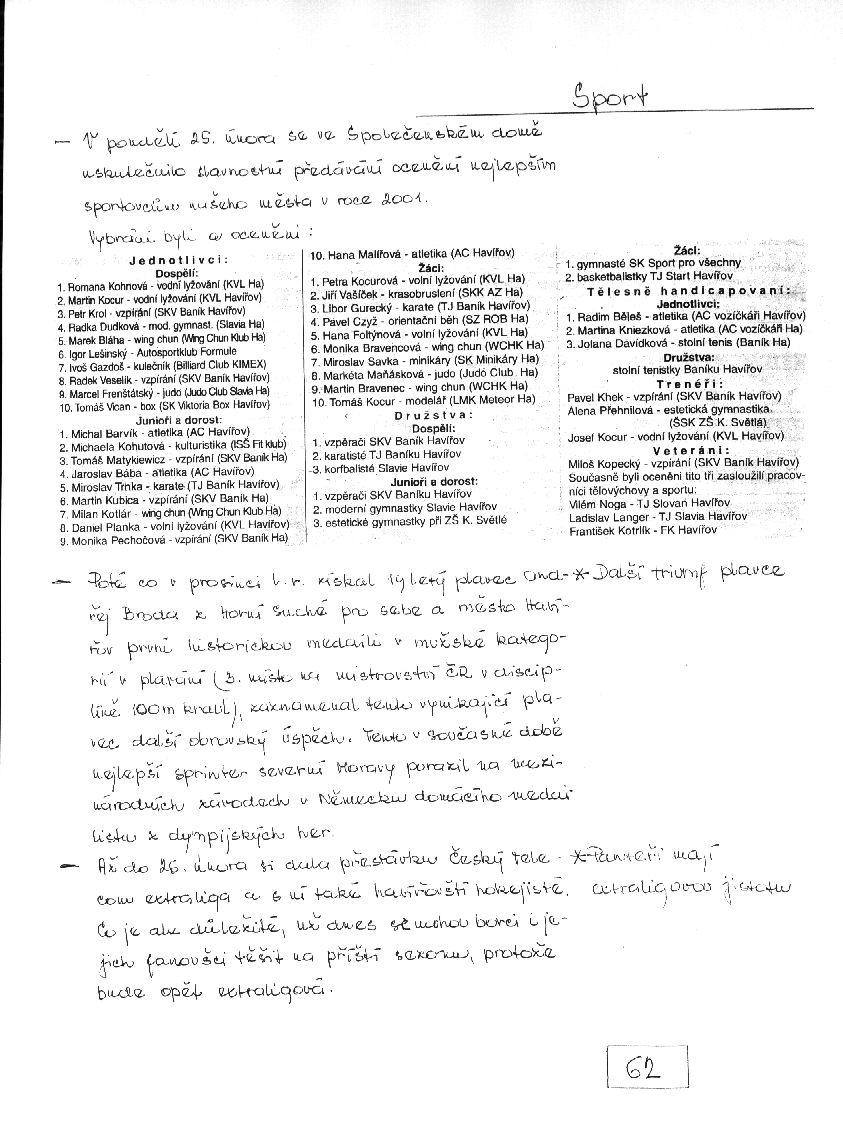 Sport
— V pondělí 25. února se ve Společenském domě
uskutečnilo slavnostní předávání ocenění nejlepším
sportovcům našeho města v roce 2001.
Vybráni byli a oceněni :
Jednotlivci:
Dospělí:
1. Romana Kohnová - vodní lyžování (KVL Ha)
2. Martin Kocur - vodní lyžování (KVL Havířov)
3. Petr Krol - vzpírání (SKV Baník Havířov)
4. Radka Dudková - mod. gymnast. (Slavia Ha)
5. Marek Bláha - wing chun (Wing Chun Klub Ha)
6. Igor Lešinský - Autosportklub Formule
7. Ivoš Gazdoš - kulečník (Billiard Club KIMEX)
8. Radek Veselík - vzpírání (SKV Baník Havířov)
9. Marcel Frenštátský - judo (Judo Club Slavia Ha)
10. Tomáš Vican - box (SK Viktoria Box Havířov)
Junioři a dorost:
1. Michal Barvík - atletika (AC Havířov)
2. Michaela Kohutová - kulturistika (ISŠ Fit klub)
3. Tomáš Matykiewicz - vzpírání (SKV Baník Ha)
4. Jaroslav Bába - atletika (AC Havířov)
5. Miroslav Trnka - karate (TJ Baník Havířov)
6. Martin Kubica - vzpírání (SKV Baník Ha)
7. Milan Kotlár - wing chun (Wing Chun Klub Ha)
8. Daniel Planka - volní lyžování (KVL Havířov)
9. Monika Pechočová - vzpírání (SKV Baník Ha)
10. Hana Malířová - atletika (AC Havířov)
Žáci:
1. Petra Kocurová - volní lyžování (KVL Ha)
2. Jiří Vašíček - krasobruslení (SKK AZ Ha)
3. Libor Gurecký - karate (TJ Baník Havířov)
4. Pavel Czyž - orientační běh (SZ ROB Ha)
5. Hana Foltýnová - volní lyžování (KVL Ha)
6. Monika Bravencová - wing chun (WCHK Ha)
7. Miroslav Savka - minikáry (SK Minikáry Ha)
8. Markéta Maňásková - judo (Judo Club Ha)
9. Martin Bravenec - wing chun (WCHK Ha)
10. Tomáš Kocur - modelář (LMK Meteor Ha)
Družstva:
Dospělí:
1. vzpěrači SKV Baník Havířov
2. karatisté TJ Baníku Havířov
3. korfbalisté Slavie Havířov
Junioři a dorost:
1. vzpěrači SKV Baníku Havířov
2. moderní gymnastky Slavie Havířov
3. estetické gymnastky při ZŠ K. Světlé
Žáci:
1. gymnasté SK Sport pro všechny
2. basketbalistky TJ Start Havířov
Tělesně handicapovaní:
Jednotlivci:
1. Radim Běleš - atletika (AC vozíčkáři Havířov)
2. Martina Kniezková - atletika (AC vozíčkáři Ha)
3. Jolana Davídková - stolní tenis (Baník Ha)
Družstva:
stolní tenistky Baníku Havířov
Trenéři:
Pavel Khek - vzpírání (SKV Baník Havířov)
Alena Přehnilová - estetická gymnastika
(ŠSK ZŠ K. Světlá)
Josef Kocur - vodní lyžování (KVL Havířov)
Veteráni:
Miloš Kopecký - vzpírání (SKV Baník Havířov)
Současně byli oceněni tito tři zasloužilí pracov-
níci tělovýchovy a sportu:
Vilém Noga - TJ Slovan Havířov
Ladislav Langer - TJ Slavia Havířov
František Kotrlík - FK Havířov
— Poté co v prosinci l. r. získal 19letý plavec Ond- * Další triumf plavce
řej Broda z Horní Suché pro sebe a město Haví-
řov první historickou medaili v mužské katego-
rii v plavání (3. místo na mistrovství ČR v discip-
líně 100m kraul), zaznamenal tento vynikající pla-
vec další obrovský úspěch. Tento v současné době
nejlepší sprinter severní Moravy porazil na mezi-
národních závodech v Německu domácího medai
listu z olympijských her.
— Až do 26. února si dala přestávku Český Tele- * Panteři mají
com extraliga a s ní také havířovští hokejisté. extraligovou jistotu
Co je ale důležité, už dnes se mohou borci i je-
jich fanoušci těšit na příští sezonu, protože
bude opět extraligová.
62